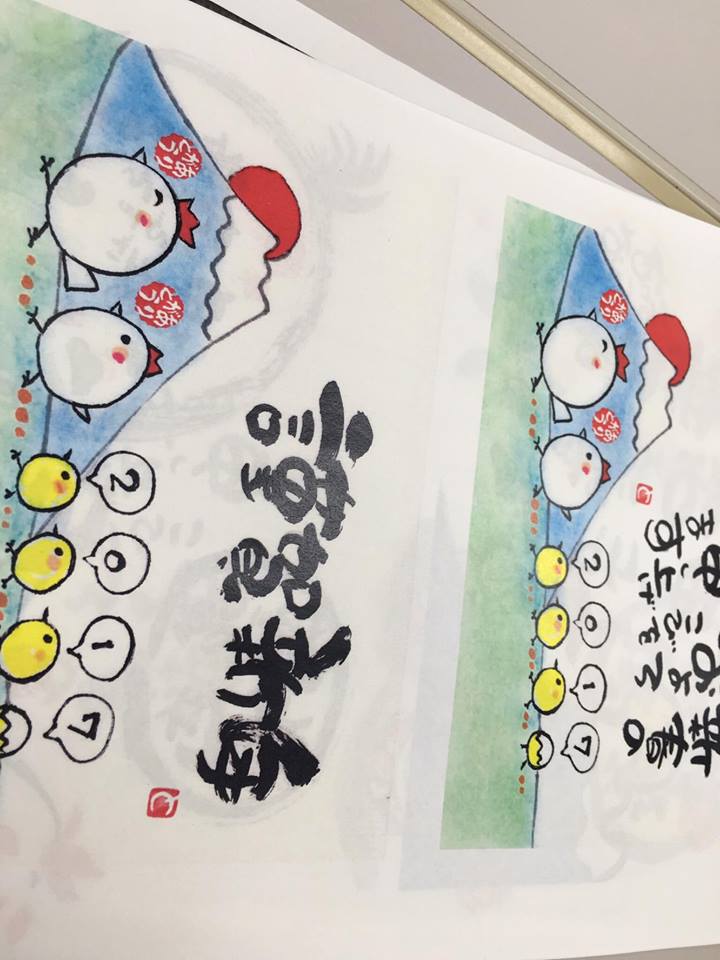 謹賀新年
2 0 1 7
新春の
およろ
こびを
申し上げ
ます
2 0 1 7